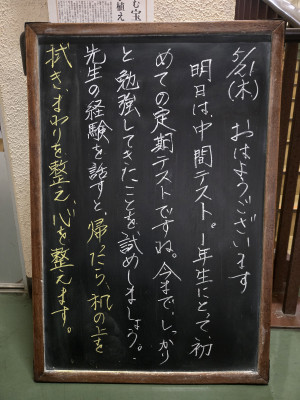 5/21(木) おはようございます
明日は、中間テスト。1年生にとって、初
めての定期テストですね。今まで、しっかり
と勉強してきたことを、試めしましょう。
先生の経験を話すと、帰ったら、机の上を
拭き、まわりを整え、心を整えます。
む宝
植え